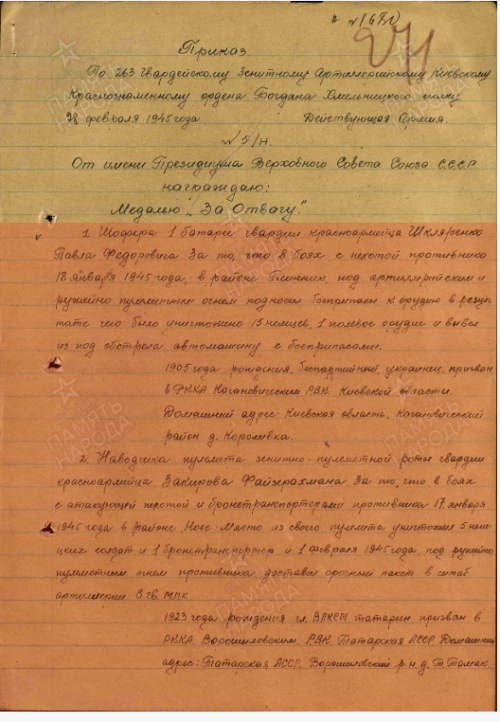 № 1680
271
Приказ
По 263 Гвардейскому Зенитному Артиллерийскому Киевскому
Краснознаменному ордена Богдана Хмельницкого полку
28 февраля 1945 года. Действующая Армия.
№ 5/н.
От имени Президиума Верховного Совета Союза СССР
награждаю:
Медалью „За Отвагу"
1. Шофера 1 батареи гвардии красноармейца Шкляренко
Павла Федоровича За то, что в боях с пехотой противника
18 января 1945 года, в районе под артиллерийским и
ружейно пулеметным огнем подносил боеприпасы к орудию в резуль
тате чего было уничтожено 15 немцев, 1 полевое орудие и вывел
из под обстрела автомашину с боеприпасами.
1905 года рождения, беспартийный, украинец, призван
в РККА Кагановичским РВК Киевской области.
Домашний адрес: Киевская область, Кагановичский
район д. Королевка.
2. Наводчика пулемета зенитно-пулеметной роты гвардии
красноармейца Закирова Файзерахмана За то, что в боях
с атакующей пехотой и бронетранспортерами противника 17 января
1945 года в районе из своего пулемета уничтожил 5 немец
ких солдат и 1 бронетранспортер и 1 февраля 1945 года, под ружейно
пулеметным огнем противника доставил срочный пакет в штаб
артиллерии 8 гв. МПК
1923 года рождения чл. ВЛКСМ татарин призван в
РККА Ворошиловским РВК Татарская АССР Домашний
адрес: Татарская АССР, Ворошиловский р-н д. Т. Тамак.
ПАМЯТЬ
НАРОДА